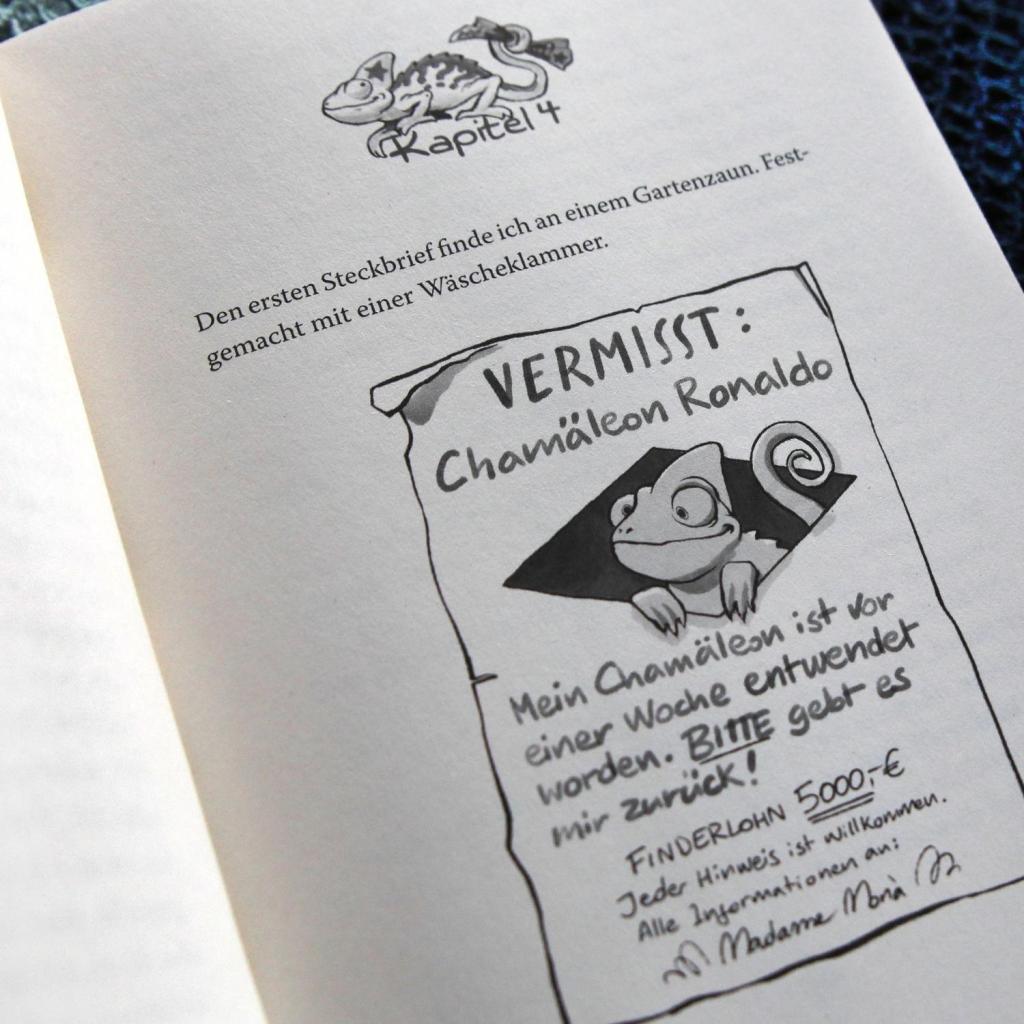 Kapitel 4
Den ersten Steckbrief finde ich an einem Gartenzaun. Fest-
gemacht mit einer Wäscheklammer.
VERMISST:
Chamäleon Ronaldo
Mein Chamäleon ist vor
einer Woche entwendet
worden. BITTE gebt es
mir zurück!
FINDERLOHN 5000,-€
Jeder Hinweis ist willkommen.
Alle Informationen an:
Madame Morià